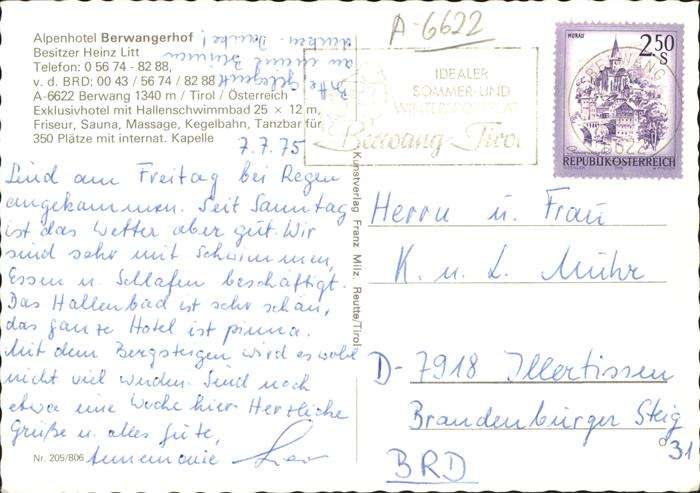 Alpenhotel Berwangerhof
Besitzer Heinz Litt
Telefon: 0 56 74 - 82 88,
v. d. BRD: 00 43 / 56 74 / 82 88
A-6622 Berwang 1340 m / Tirol / Österreich
Exklusivhotel mit Hallenschwimmbad 25 × 12 m,
Friseur, Sauna, Massage, Kegelbahn, Tanzbar für
350 Plätze mit internat. Kapelle
Bitte
an
drücken. Danke!
7.7.75
Sind am Freitag bei Regen
angekommen. Seit Sonntag
ist das Wetter aber gut. Wir
sind sehr mit Schwimmen,
Essen u. Schlafen beschäftigt.
Das Hallenbad ist sehr schön,
das ganze Hotel ist prima.
Mit dem Bergsteigen wird es wohl
nicht viel werden. Sind noch
etwa eine Woche hier. Herzliche
Grüße u. alles Gute,
Annemarie
Nr. 205/806
Kunstverlag Franz Milz, Reutte/Tirol
A-6622
IDEALER
SOMMER- UND
WINTERSPORTPLATZ
Berwang-Tirol
BERWANG
6622
MURAU
2.50
S
REPUBLIK ÖSTERREICH
Herrn u. Frau
K. u. L. Mühr
D-7918 Illertissen
Brandenburger Steig
31
BRD